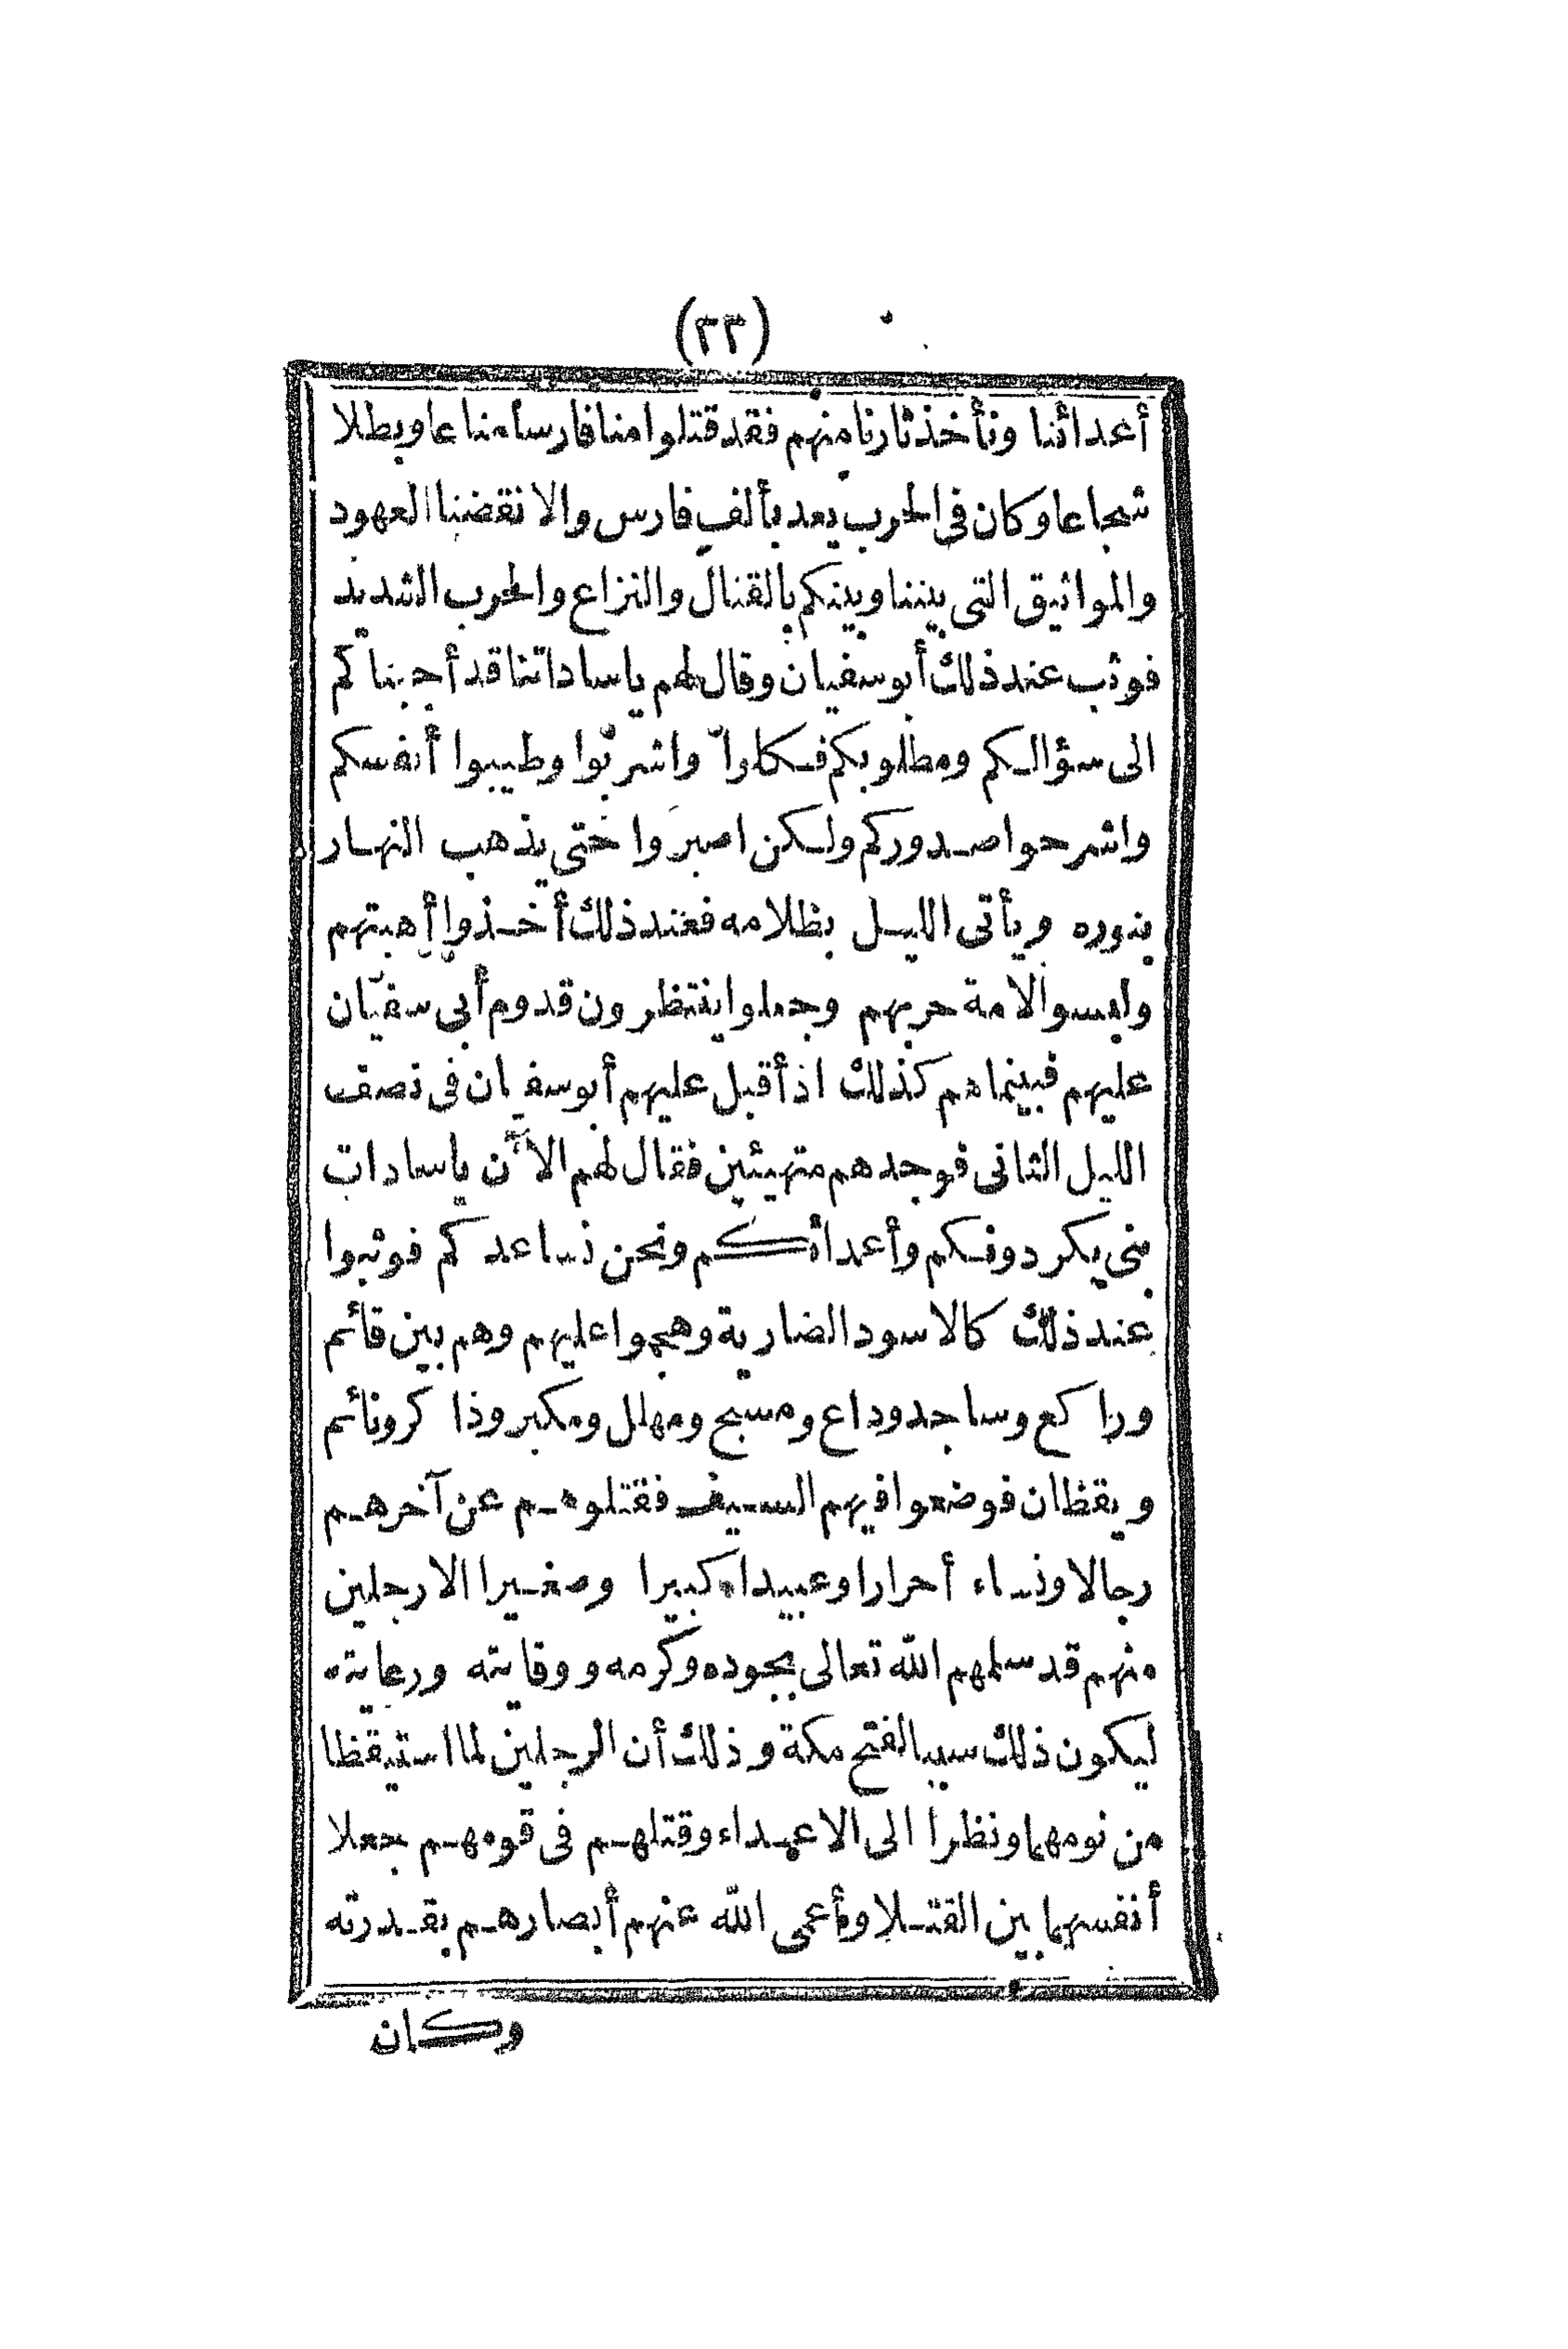 (٣٣)
أعدائنا ونأخذ ثارنا منهم فقد قتلوا منا فارسا مناعا وبطلا
شجاعا وكان في الحرب يعد بألف فارس والا نقضنا العهود
والمواثيق التى بيننا وبينكم بالقتال والنزاع والحرب الشديد
فوثب عند ذلك أبو سفيان وقال لهم ياساداتنا قد أجبناكم
الى سؤالكم ومطلوبكم فكلوا واشربوا وطيبوا أنفسكم
واشرحوا صدوركم ولكن اصبروا حتى يذهب النهار
بنوره ويأتى الليل بظلامه فعند ذلك أخذوا أهبتهم
ولبسوا لامة حربهم وجعلوا ينتظرون قدوم أبى سفيان
عليهم فبينما هم كذلك اذ أقبل عليهم أبو سفيان فى نصف
الليل الثانى فوجدهم متهيئين فقال لهم الآن ياسادات
بنى بكر دونكم وأعداءكم ونحن نساعدكم فوثبوا
عند ذلك كالاسود الضارية وهجموا عليهم وهم بين قائم
وراكع وساجد وداع ومسبح ومهلل ومكبر وذاكر ونائم
ويقظان فوضعوا فيهم السيف فقتلوهم عن آخرهم
رجالا ونساء أحرارا وعبيدا كبيرا وصغيرا الا رجلين
منهم قد سلمهم الله تعالى بجوده وكرمه ووقايته ورعايته
ليكون ذلك سببا لفتح مكة وذلك أن الرجلين لما استيقظا
من نومهما ونظرا الى الاعداء وقتلهم فى قومهم جعلا
أنفسهما بين القتلا وأعمى الله عنهم أبصارهم بقدرته
وكان